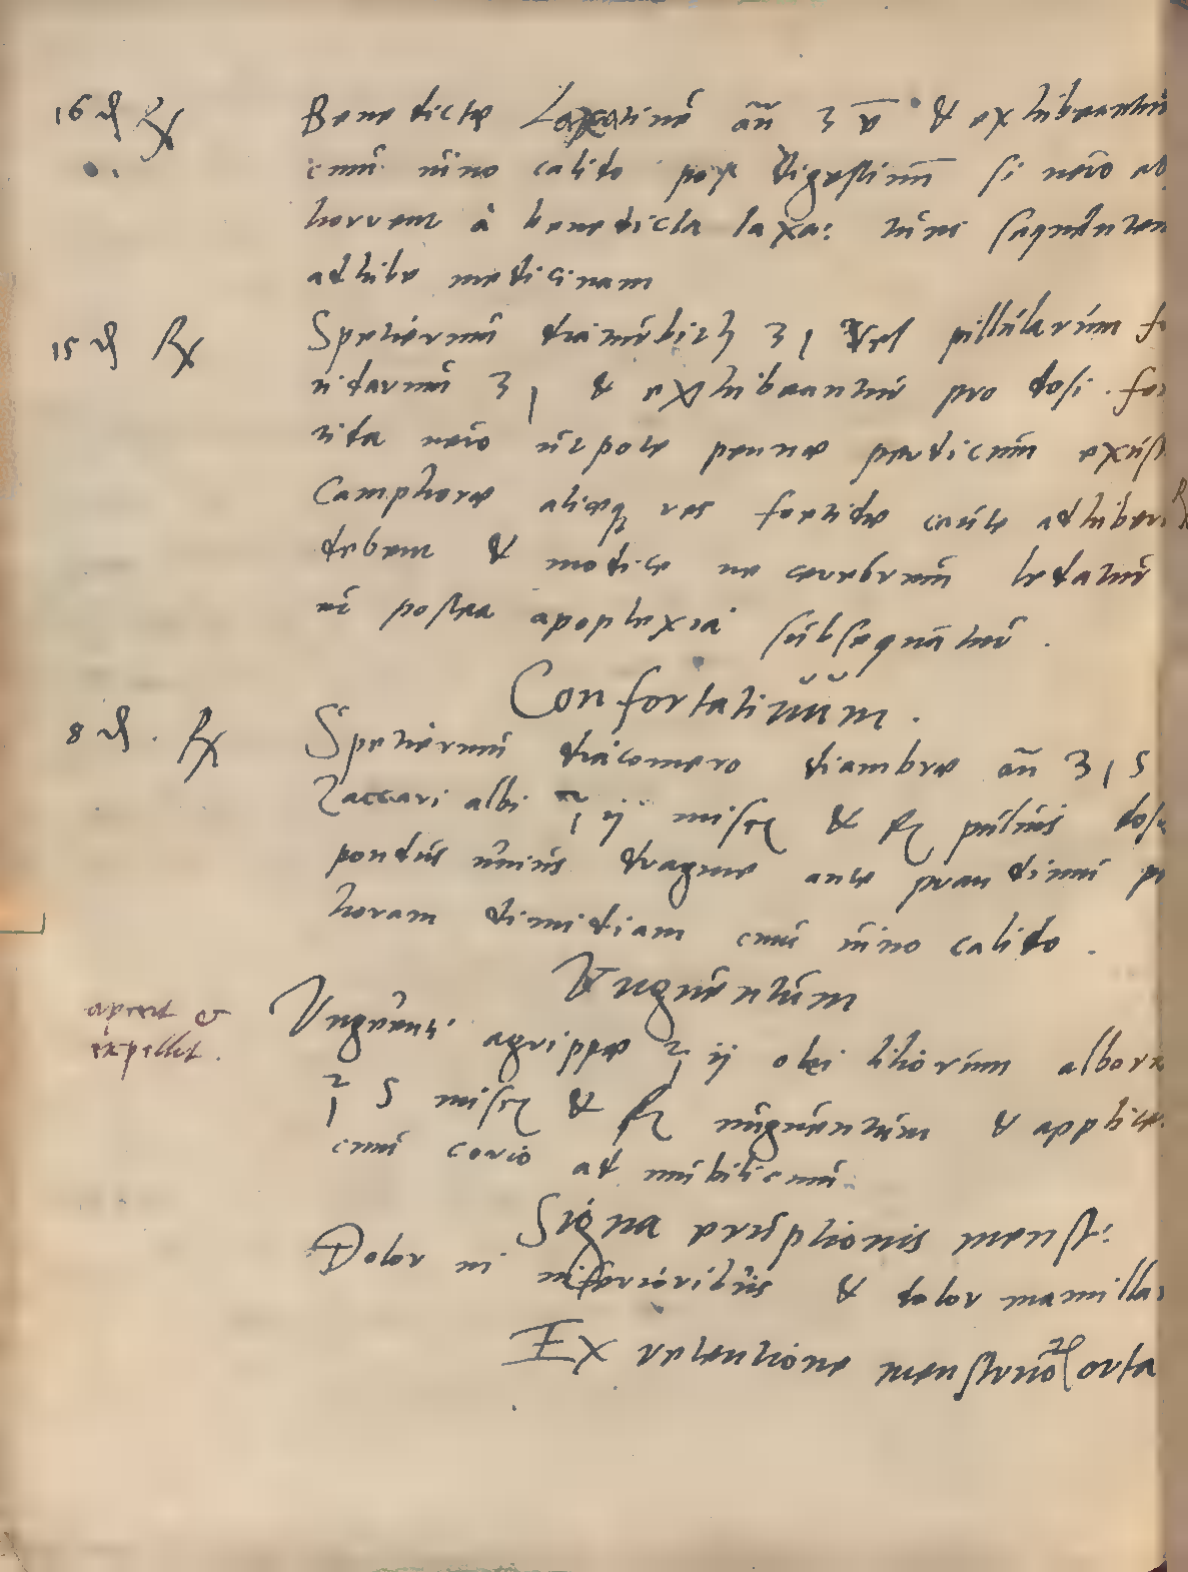 16 ₰ ℞ Benedictæ Laxatiuē añ ʒ v & exhibeantur
cum uino calido post digestiuū si uero ab
horreat à benedicta laxa: tunc sequentem
adhibe medicinam
15 ₰ ℞ Spetierum diaturbith ʒ 1 vel pillularum fe
tidarum ʒ 1 & exhibeantur pro dosi. foe
tida uero utpote pennæ perdicum
Camphoræ aliæq res foetidæ caute adhiberi
debent & modice ne cerebrum ledatur
ut postea apoplexia subsequatur.
Confortatiuum.
8 ₰. ℞ Spetierum diacomero diambræ añ ʒ 1 s
Zaccari albi ℥ ij misce & fiat puluis
pondus unius dragme ante prandium
horam dimidiam cum uino calido.
Vnguentum
aperit &
expellit.
Vnguenti agrippæ ℥ ij olei liliorum alborū
℥ s misce & fiat unguentum & applice
cum corio ad umbilicum.
Signa eruptionis menst:
Dolor in inferioribus & dolor mamilla
Ex retentione menstruoꝝ orta